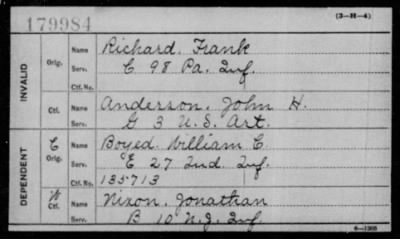 179984
(3-H-4)
INVALID
Orig. Name Richard, Frank
Serv. C 98 Pa. Inf.
Ctf. No.
Ctf. Name Anderson, John H.
Serv. G 3 U.S. Art.
DEPENDENT
C Orig. Name Boyed William C.
Serv. E 27 Ind. Inf.
Ctf. No. 135713
W Ctf. Name Nixon, Jonathan
Serv. B 10 N.J. Inf